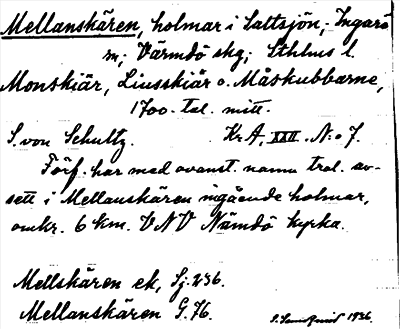 Mellanskären, holmar i Saltsjön; Ingarö
sn; Värmdö skg; Sthlms l.
Monskiär, Liusskiär o. Måskubbarne,
1700-tal. mitt.
S. von Schultz. Kr. A, XXII. N:o 7.
Förf. har med ovanst. namn trol. av-
sett i Mellanskären ingående holmar,
omkr. 6 km. VNV Nämdö kyrka.
Mellskären ek, Sj. 236.
Mellanskären G. 76. 1936.